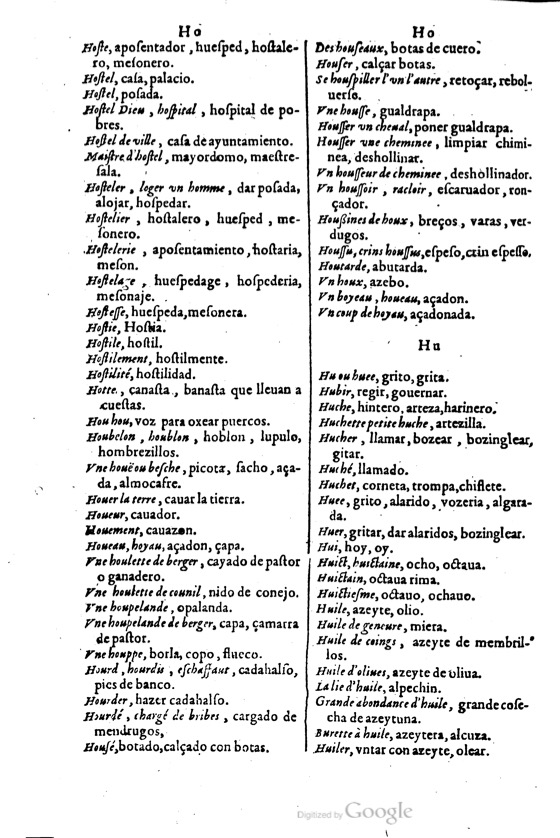 Ho
Hoſte, apoſentador, hueſped, hoſtale-
ro, meſonero.
Hoſtel, caſa, palacio.
Hoſtel, poſada.
Hoſtel Dieu, hoſpital, hoſpital de po-
bres.
Hoſtel de ville, caſa de ayuntamiento.
Maiſtre d'hoſtel, mayordomo, maeſtre-
ſala.
Hoſteler, loger vn homme, dar poſada,
alojar, hoſpedar.
Hoſtelier, hoſtalero, hueſped, me-
ſonero.
Hoſtelerie, apoſentamiento, hoſtaria,
meſon.
Hoſtelage, hueſpedage, hoſpederia,
meſonaje.
Hoſteſſe, hueſpeda, meſonera.
Hoſtie, Hoſtia.
Hoſtile, hoſtil.
Hoſtilement, hoſtilmente.
Hoſtilité, hoſtilidad.
Hotte, canaſta, banaſta que lleuan a
cueſtas.
Hou hou, voz para oxear puercos.
Houbelon, houblon, hoblon, lupulo,
hombrezillos.
Vne houë ou beſche, picota, ſacho, aça-
da, almocafre.
Houer la terre, cauar la tierra.
Houeur, cauador.
Houement, cauazon.
Houeau, hoyau, açadon, çapa.
Vne houlette de berger, cayado de paſtor
o ganadero.
Vne houlette de counil, nido de conejo.
Vne houpelande, opalanda.
Vne houpelande de berger, capa, çamarra
de paſtor.
Vne houppe, borla, copo, flueco.
Hourd, hourdis, eſchaffaut, cadahalſo,
pies de banco.
Hourder, hazer cadahalſo.
Hourdé, chargé de bribes, cargado de
mendrugos,
Houſé, botado, calçado con botas.
Ho
Des houſeaux, botas de cuero.
Houſer, calçar botas.
Se houſpiller l'vn l'autre, retoçar, rebol-
uerſe.
Vne houſſe, gualdrapa.
Houſſer vn cheual, poner gualdrapa.
Houſſer vne cheminee, limpiar chimi-
nea, deshollinar.
Vn houſſeur de cheminee, deshollinador.
Vn houſſoir, racloir, eſcaruador, ron-
çador.
Houßines de houx, breços, varas, ver-
dugos.
Houſſu, crins houſſus, eſpeſo, crin eſpeſſo.
Houtarde, abutarda.
Vn houx, azebo.
Vn boyeau, houeau, açadon.
Vn coup de hoyau, açadonada.
Hu
Hu ou huee, grito, grita.
Hubir, regir, gouernar.
Huche, hintero, arteza, harinero.
Huchette petite huche, artezilla.
Hucher, llamar, bozear, bozinglear,
gitar.
Huché, llamado.
Huchet, corneta, trompa, chiflete.
Huee, grito, alarido, vozeria, algara-
da.
Huer, gritar, dar alaridos, bozinglear.
Hui, hoy, oy.
Huict, huictaine, ocho, octaua.
Huictain, octaua rima.
Huictieſme, octauo, ochauo.
Huile, azeyte, olio.
Huile de geneure, miera.
Huile de coings, azeyte de membril-
los.
Huile d'oliues, azeyte de oliua.
La lie d'huile, alpechin.
Grande abondance d'huile, grande coſe-
cha de azeytuna.
Burette à huile, azeytera, alcuza.
Huiler, vntar con azeyte, olear.
Digitized by Google